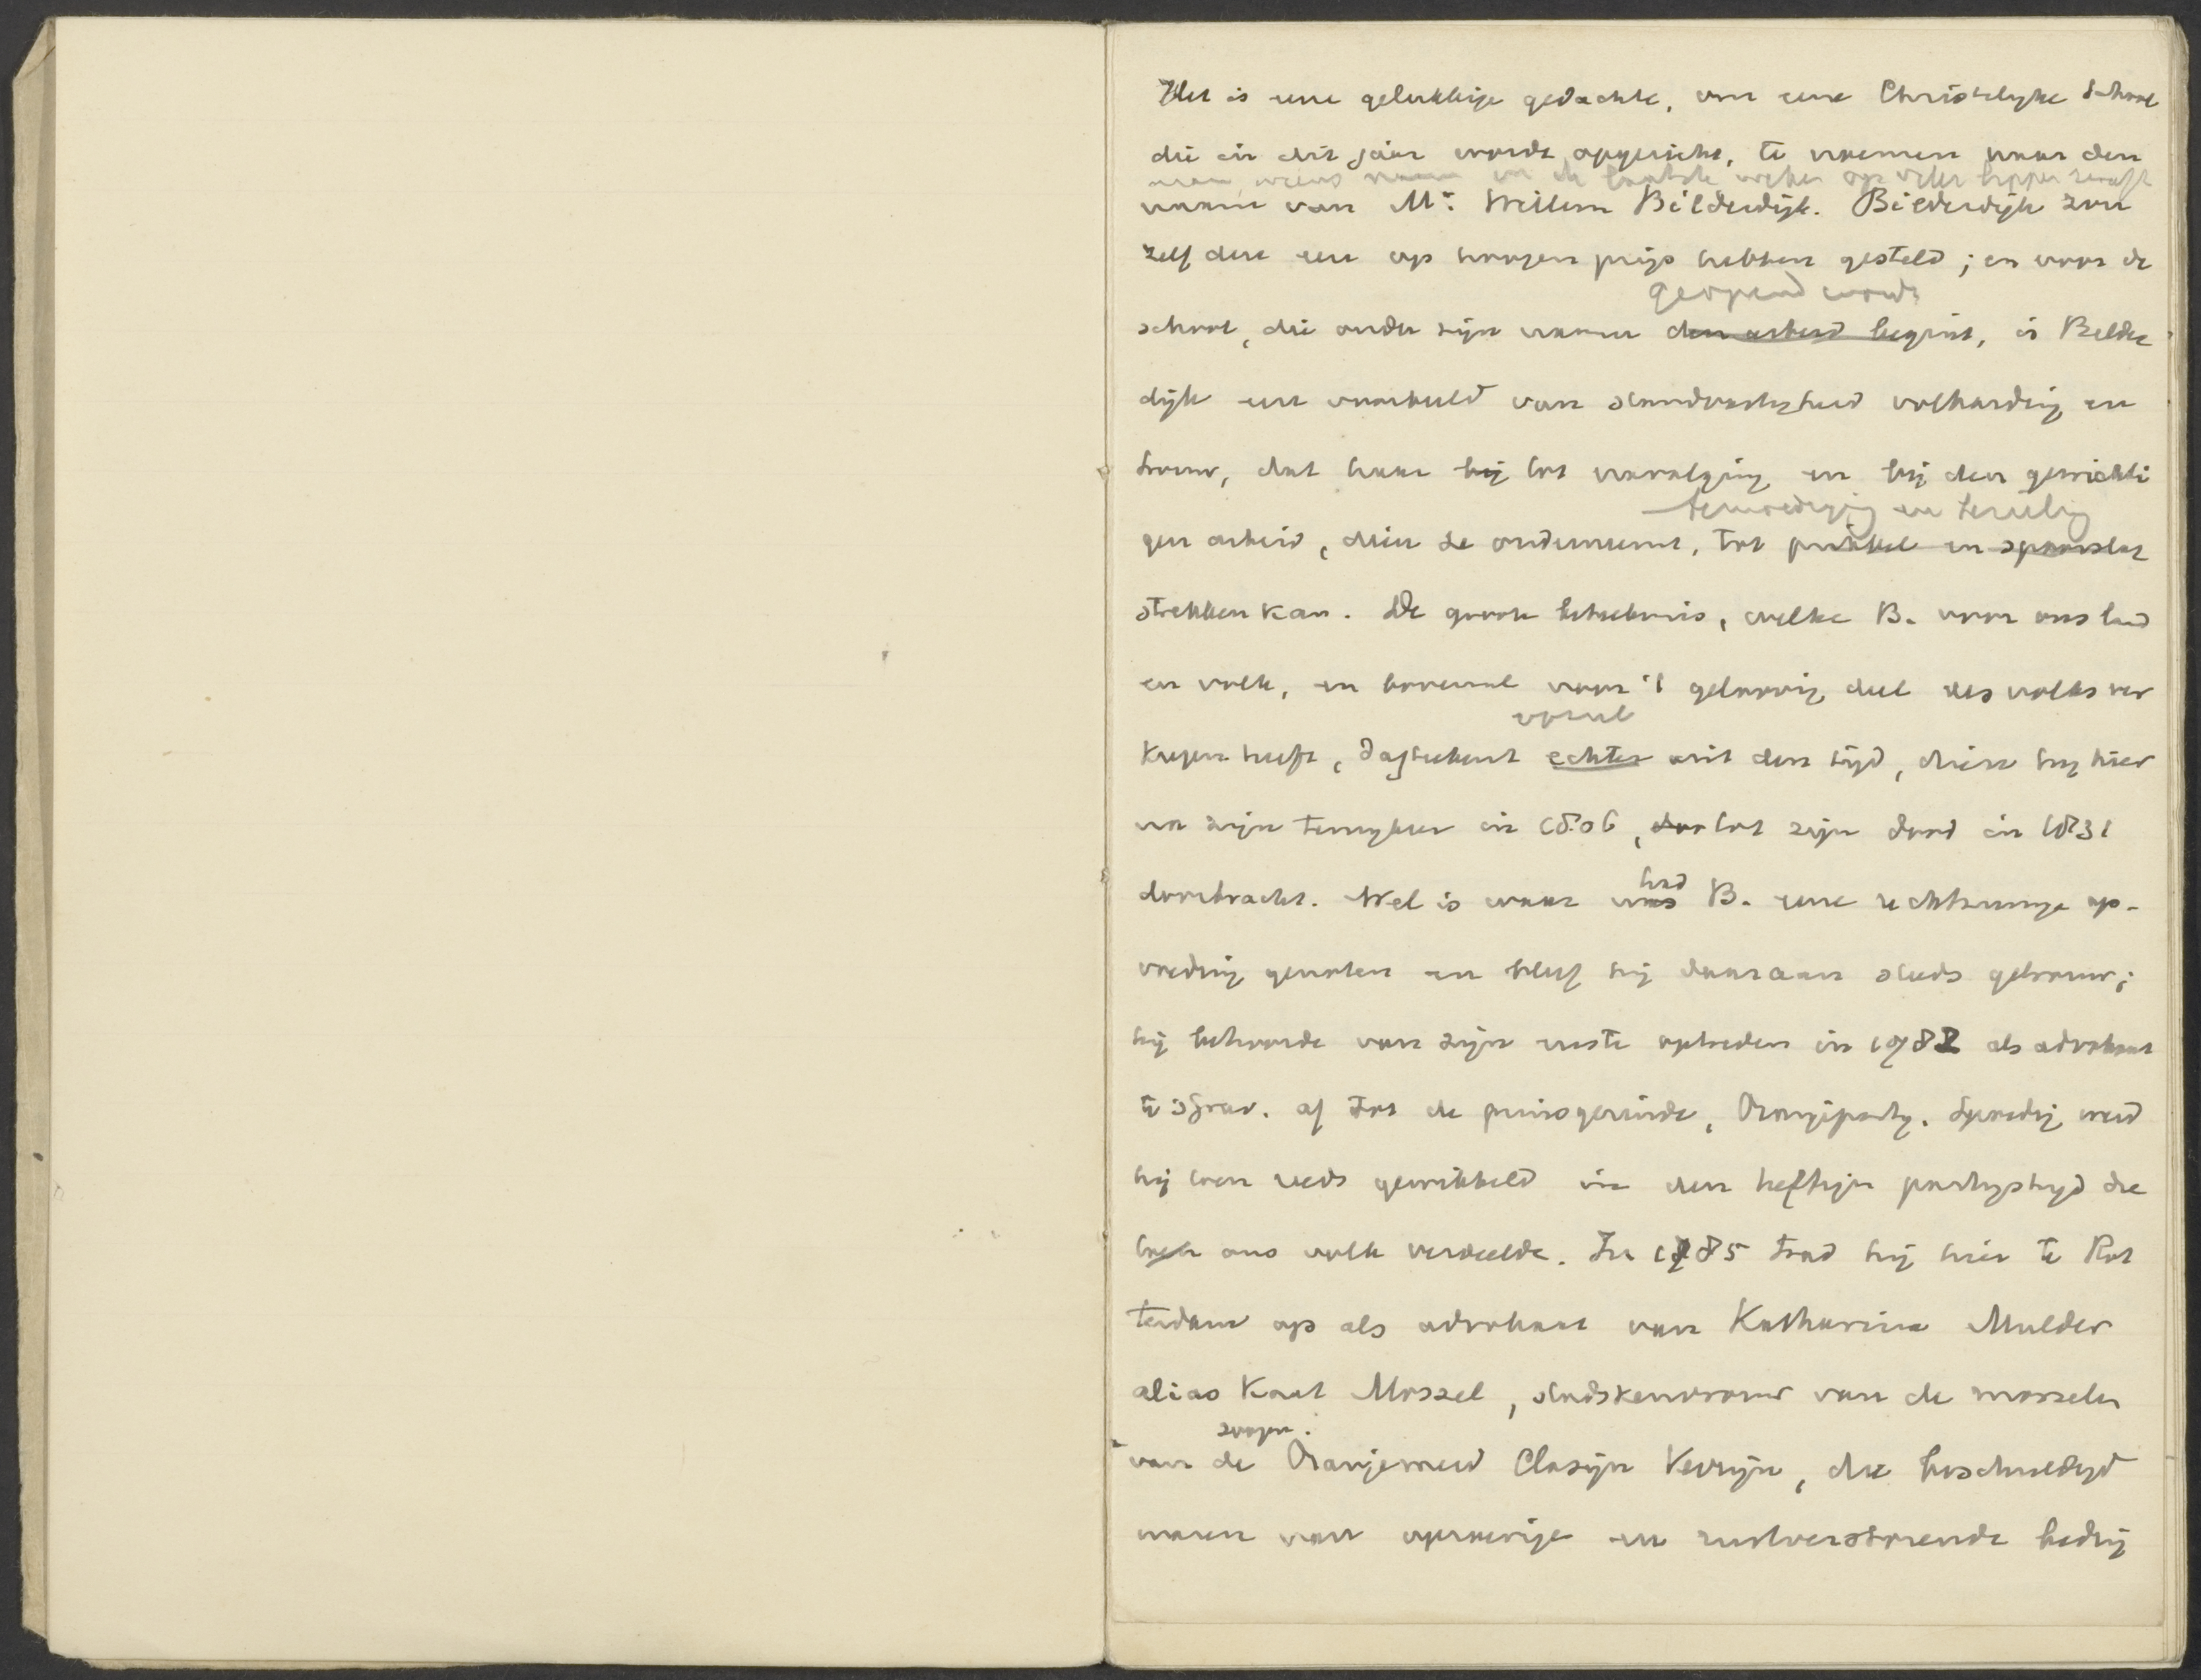 Het is eene gelukkige gedachte, om eene Christelyke School
die in dit jaar wordt opgericht, te noemen naar den
man, wiens naam in de laatste weken op veler lippen zweeft
naam van Mr. Willem Bilderdijk. Bilderdijk zou
zelf deze eer op hoogen prijs hebben gesteld; en voor de
geopend wordt
school, die onder zijn naam den arbeid begint, is Bilder
dijk een voorbeeld van standvastigheid volharding en
trouw, dat haar bij tot navolging en bij den gewichti
bemoediging en
gen arbeid, dien ze onderneemt, tot prikkel en spoorslag
strekken kan. De groote beteekenis, welke B. voor ons land
en volk, en bovenal voor 't geloovig deel des volks ver
vooral
kregen heeft, dagteekent echter uit den tijd, dien hij hier
na zijn terugkeer in 1806, tot zijn dood in 1831
doorbracht. Wel is waar was B. eene rechtzinnige op-
had
voeding genoten en bleef hij daaraan steeds getrouw;
hij behoorde van zijn eerste optreden in 1782 als advokaat
te 's Grav. af tot de prinsgezinde, Oranjeparty. Spoedig werd
hij toen reeds gewikkeld in den heftigen partystryd die
toen ons volk verdeelde. In 1785 trad hij hier te Rot
terdam op als advokaat van Katharina Mulder
alias Kaat Mossel, stadskeurvrouw van de mosselen
van de Oranjemeid Clasijn Verrijn, die beschuldigd
waren van oproerige en rustverstorende bedrij